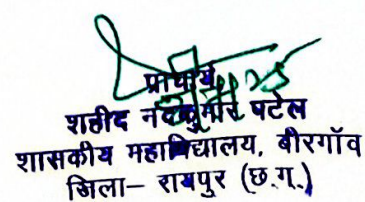 प्राचार्य
शहीद नंदकुमार पटेल
शासकीय महाविद्यालय, बीरगाँव
जिला– रायपुर (छ.ग.)